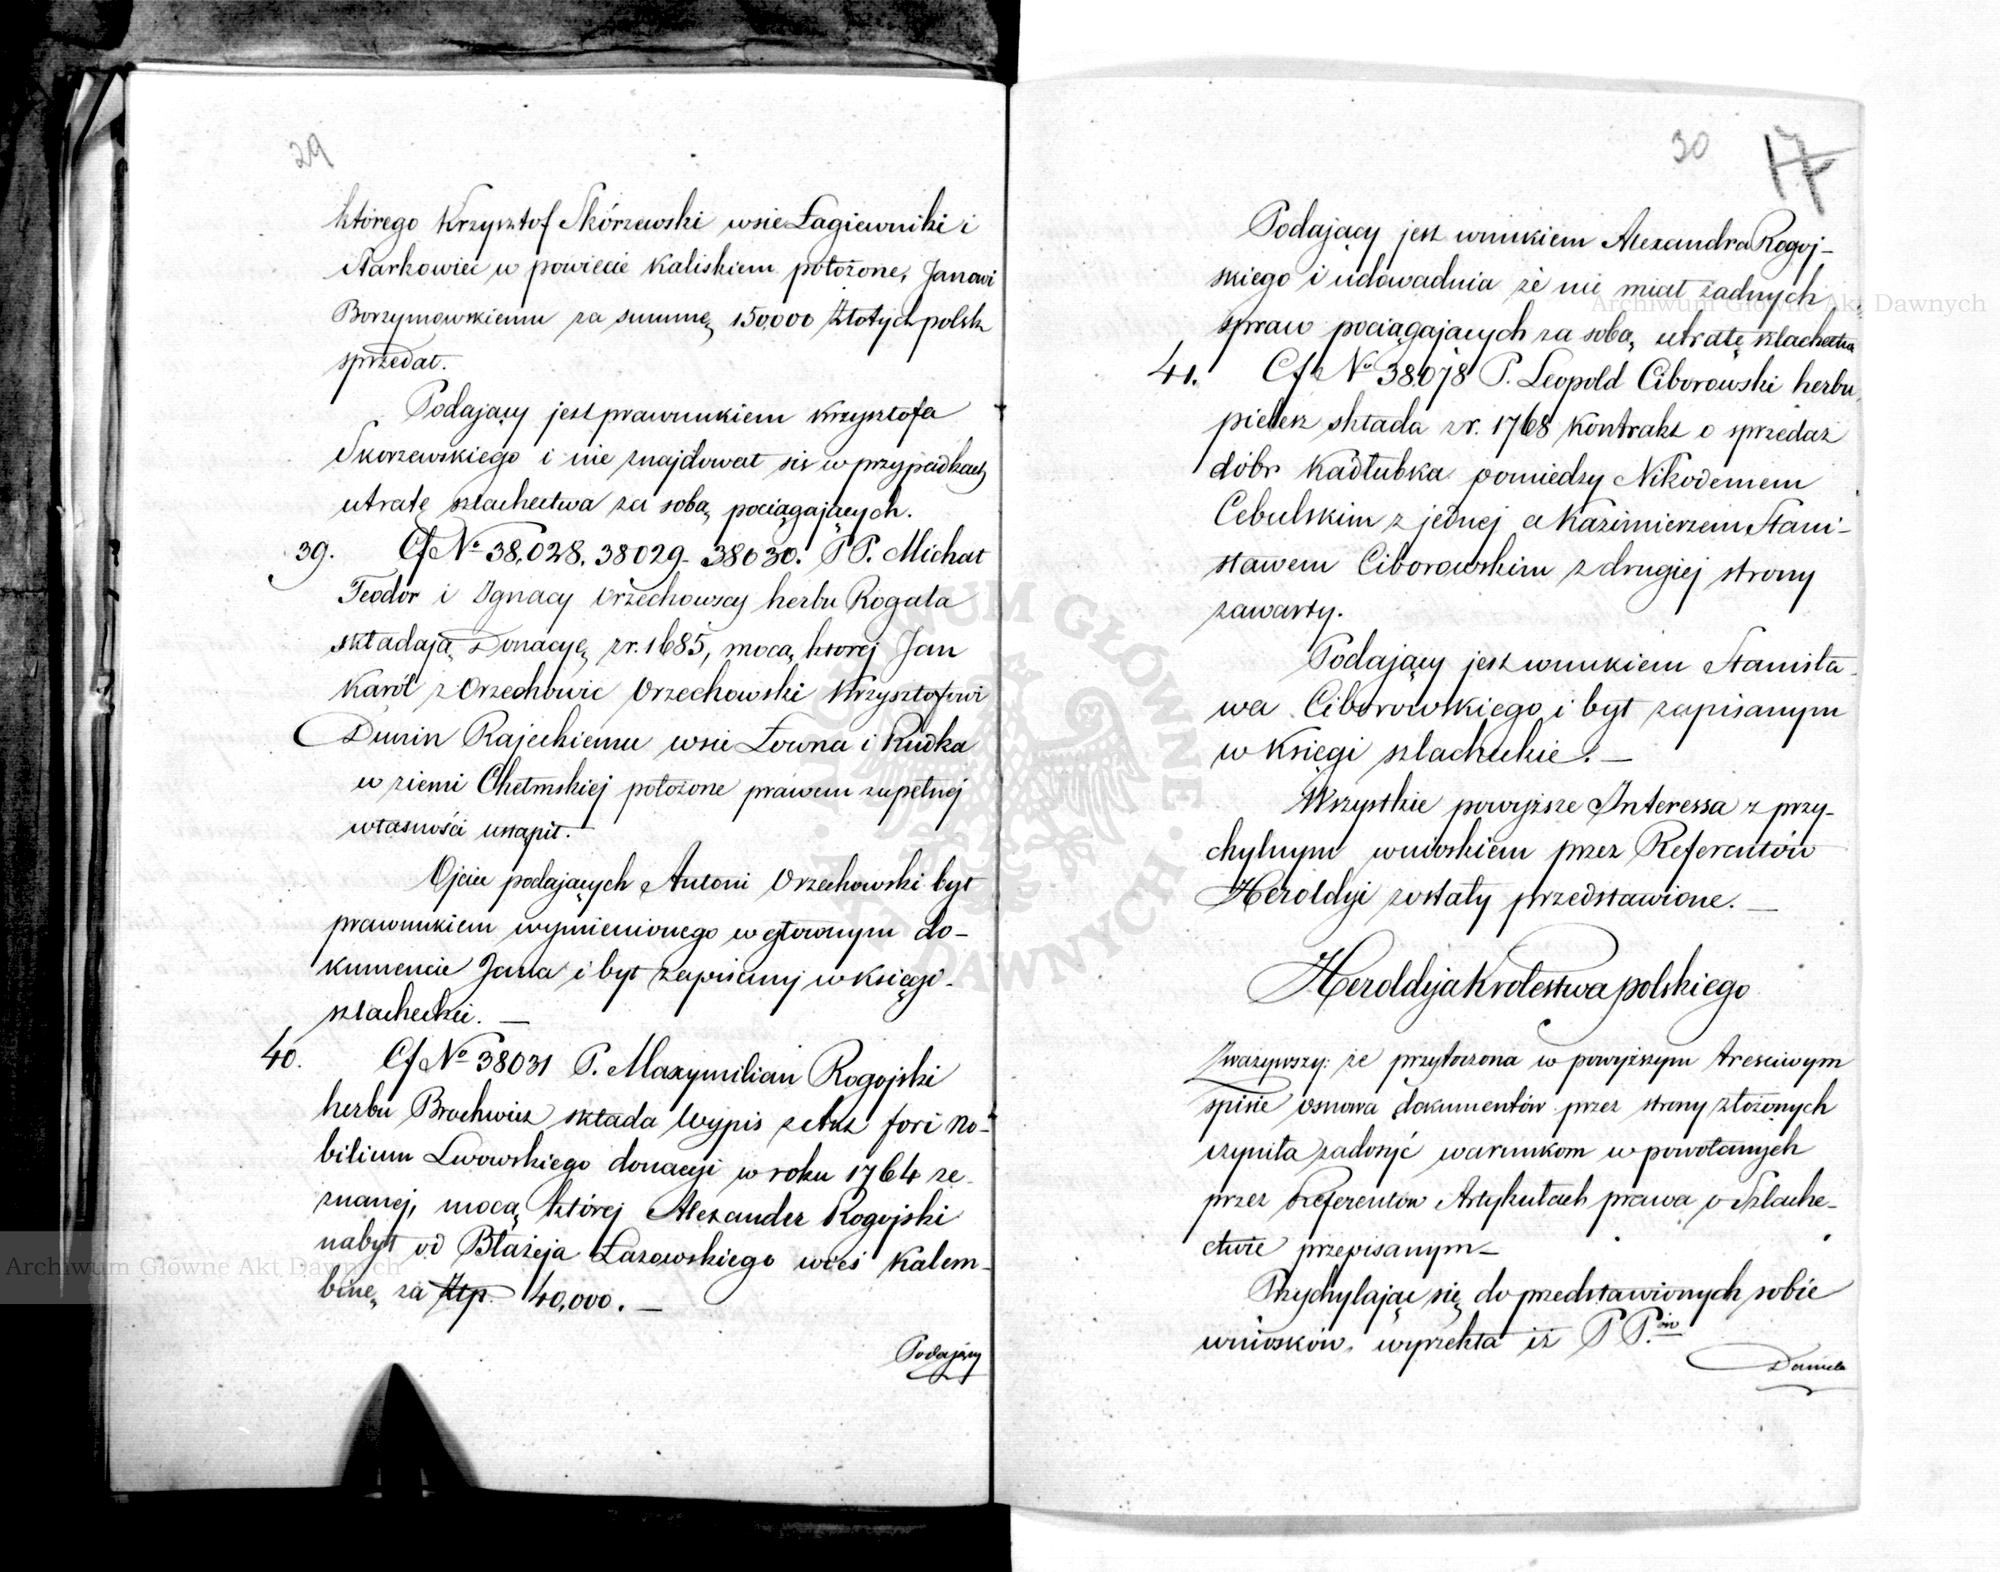 29
którego Krzysztof Skórzewski wsie Łagiewniki i
Starkowiec w powiecie Kaliskiem położone, Janowi
Borzymowskiemu za summę 150,000 Złotych polsk
sprzedał.
Podający jest prawnukiem Krzysztofa
Skorzewskiego i nie znajdował się w przypadkach
utratę szlachectwa za sobą pociągających.
39. Cf No 38,028. 38029. 38030. PP. Michał
Teodor i Ignacy Orzechowscy herbu Rogala
składają Donacyę z r. 1685, mocą ktorej Jan
Karól z Orzechowic Orzechowski Krzysztofowi
Dunin Rajeckiemu wsie Łowna i Rudka
w ziemi Chełmskiej położone prawem zupełnej
własności ustąpił.
Ojciec podających Antoni Orzechowski był
prawnukiem wymienionego w głownym do-
kumencie Jana i był zapisany w księgo-
szlacheckie. —
40. Cf No 38031 P. Maxymilian Rogojski
herbu Brochwicz składa Wypis z akt fori no-
bilium Lwowskiego donacyi w roku 1764 ze-
znanej, mocą której Alexander Rogojski
nabył od Błażeja Łazowskiego wieś Kalem-
binę za Złp. 40,000. —
Podający
30
17
Podający jest wnukiem Alexandra Rogoj-
skiego i udowadnia że nie miał żadnych
spraw pociągających za sobą utratę szlachectwa
41. Cf No 38078 P. Leopold Ciborowski herbu
pielesz składa z r. 1768 kontrakt o sprzedaż
dóbr Kadłubka pomiędzy Nikodemem
Cebulskim z jednej a Kazimierzem Stani-
sławem Ciborowskim z drugiej strony
zawarty.
Podający jest wnukiem Stanisła-
wa Ciborowskiego i był zapisanym
w Księgi szlacheckie. —
Wszystkie powyższe Interessa z przy-
chylnym wnioskiem przez Referentów
Heroldyi zostały przedstawione. —
Heroldyja Krolestwa polskiego
Zważywszy: że przytoczona w powyższym treściwym
spisie osnowa dokumentów przez strony złożonych
czyniła zadosyć warunkom w powołanych
przez Referentów Artykułach prawa o Szlache-
ctwie przepisanym —
Przychylając się do przedstawionych sobie
wniosków, wyrzekła iż P P. ów
Daniela
Archiwum Główne Akt Dawnych
Archiwum Główne Akt Dawnych
ARCHIWUM GŁÓWNE AKT DAWNYCH